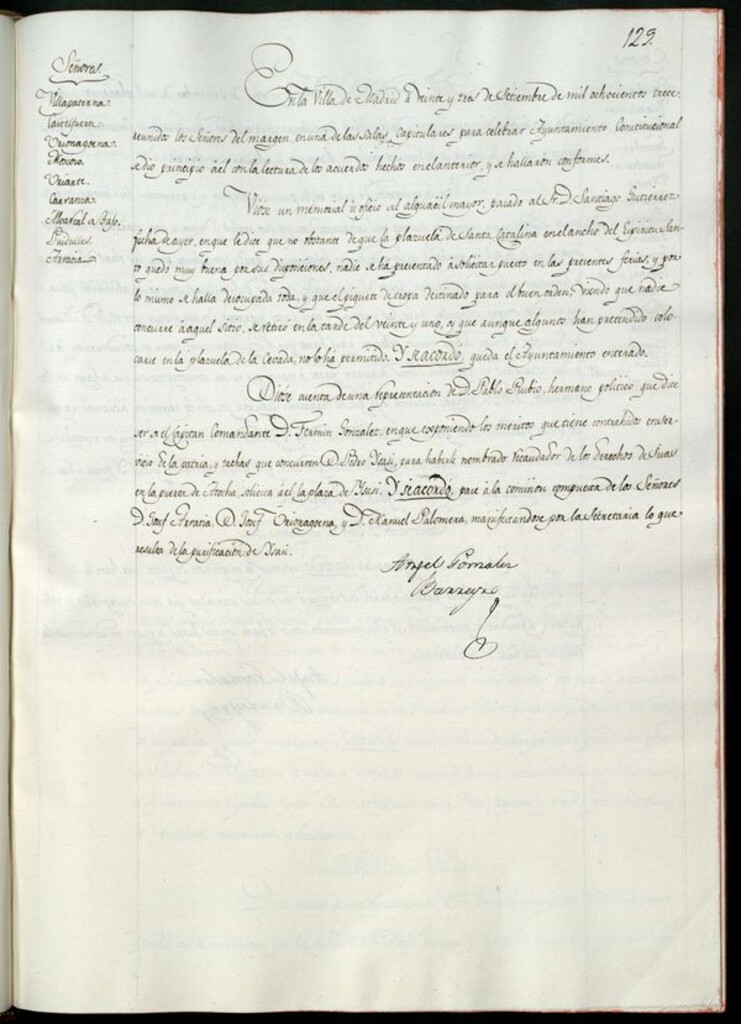 129.
Señores.
Villapaterna.
Castelfuerte
Urionagoena.
Monroi.
Uriarte.
Carranza
Abarcal a Bajo.
Puidulles.
Arratia
En la Villa de Madrid á veinte y tres de Setiembre de mil ochocientos trece:
reunidos los Señores del margen en una de las Salas Capitulares para celebrar Ayuntamiento Constitucional
se dio principio á el con la lectura de los acuerdos hechos en el anterior, y se hallaron conformes.
Viose un memorial ú oficio del alguacil mayor, pasado al Sr. D. Santiago Gutierrez
fecha de ayer, en que le dice que no obstante de que la plazuela de Santa Catalina en el ancho del Espíritu San-
to quedó muy buena por sus disposiciones, nadie se há presentado á solicitar puesto en las presentes ferias, y por
lo mismo se halla desocupada toda, y que el piquete de tropa destinado para el buen orden, viendo que nadie
concurre á aquel sitio, se retiró en la tarde del veinte y uno, y que aunque algunos han pretendido colo-
carse en la plazuela de la Cevada, no lo há permitido. Y se acordó, queda el Ayuntamiento enterado.
Diose cuenta de una representacion de D. Pablo Rubio, hermano politico, que dice
ser del Capitan Comandante D. Fermin Gonzalez, en que exponiendo los meritos que tiene contrahidos en ser-
vicio de la patria, y tachas que concurren D. Pedro Ysasi, para haberle nombrado recaudador de los derechos de
en la puerta de Atocha, solicita á el la plaza de Ysasi. Y se acordó, pase á la comision compuesta de los Señores
D. Josef Arratia, D. Josef Urionagoena, y D. Manuel Palomera, manifestandose por la Secretaria lo que
resulta de la purificacion de Ysasi.
Angel Gonzalez
Barreyro